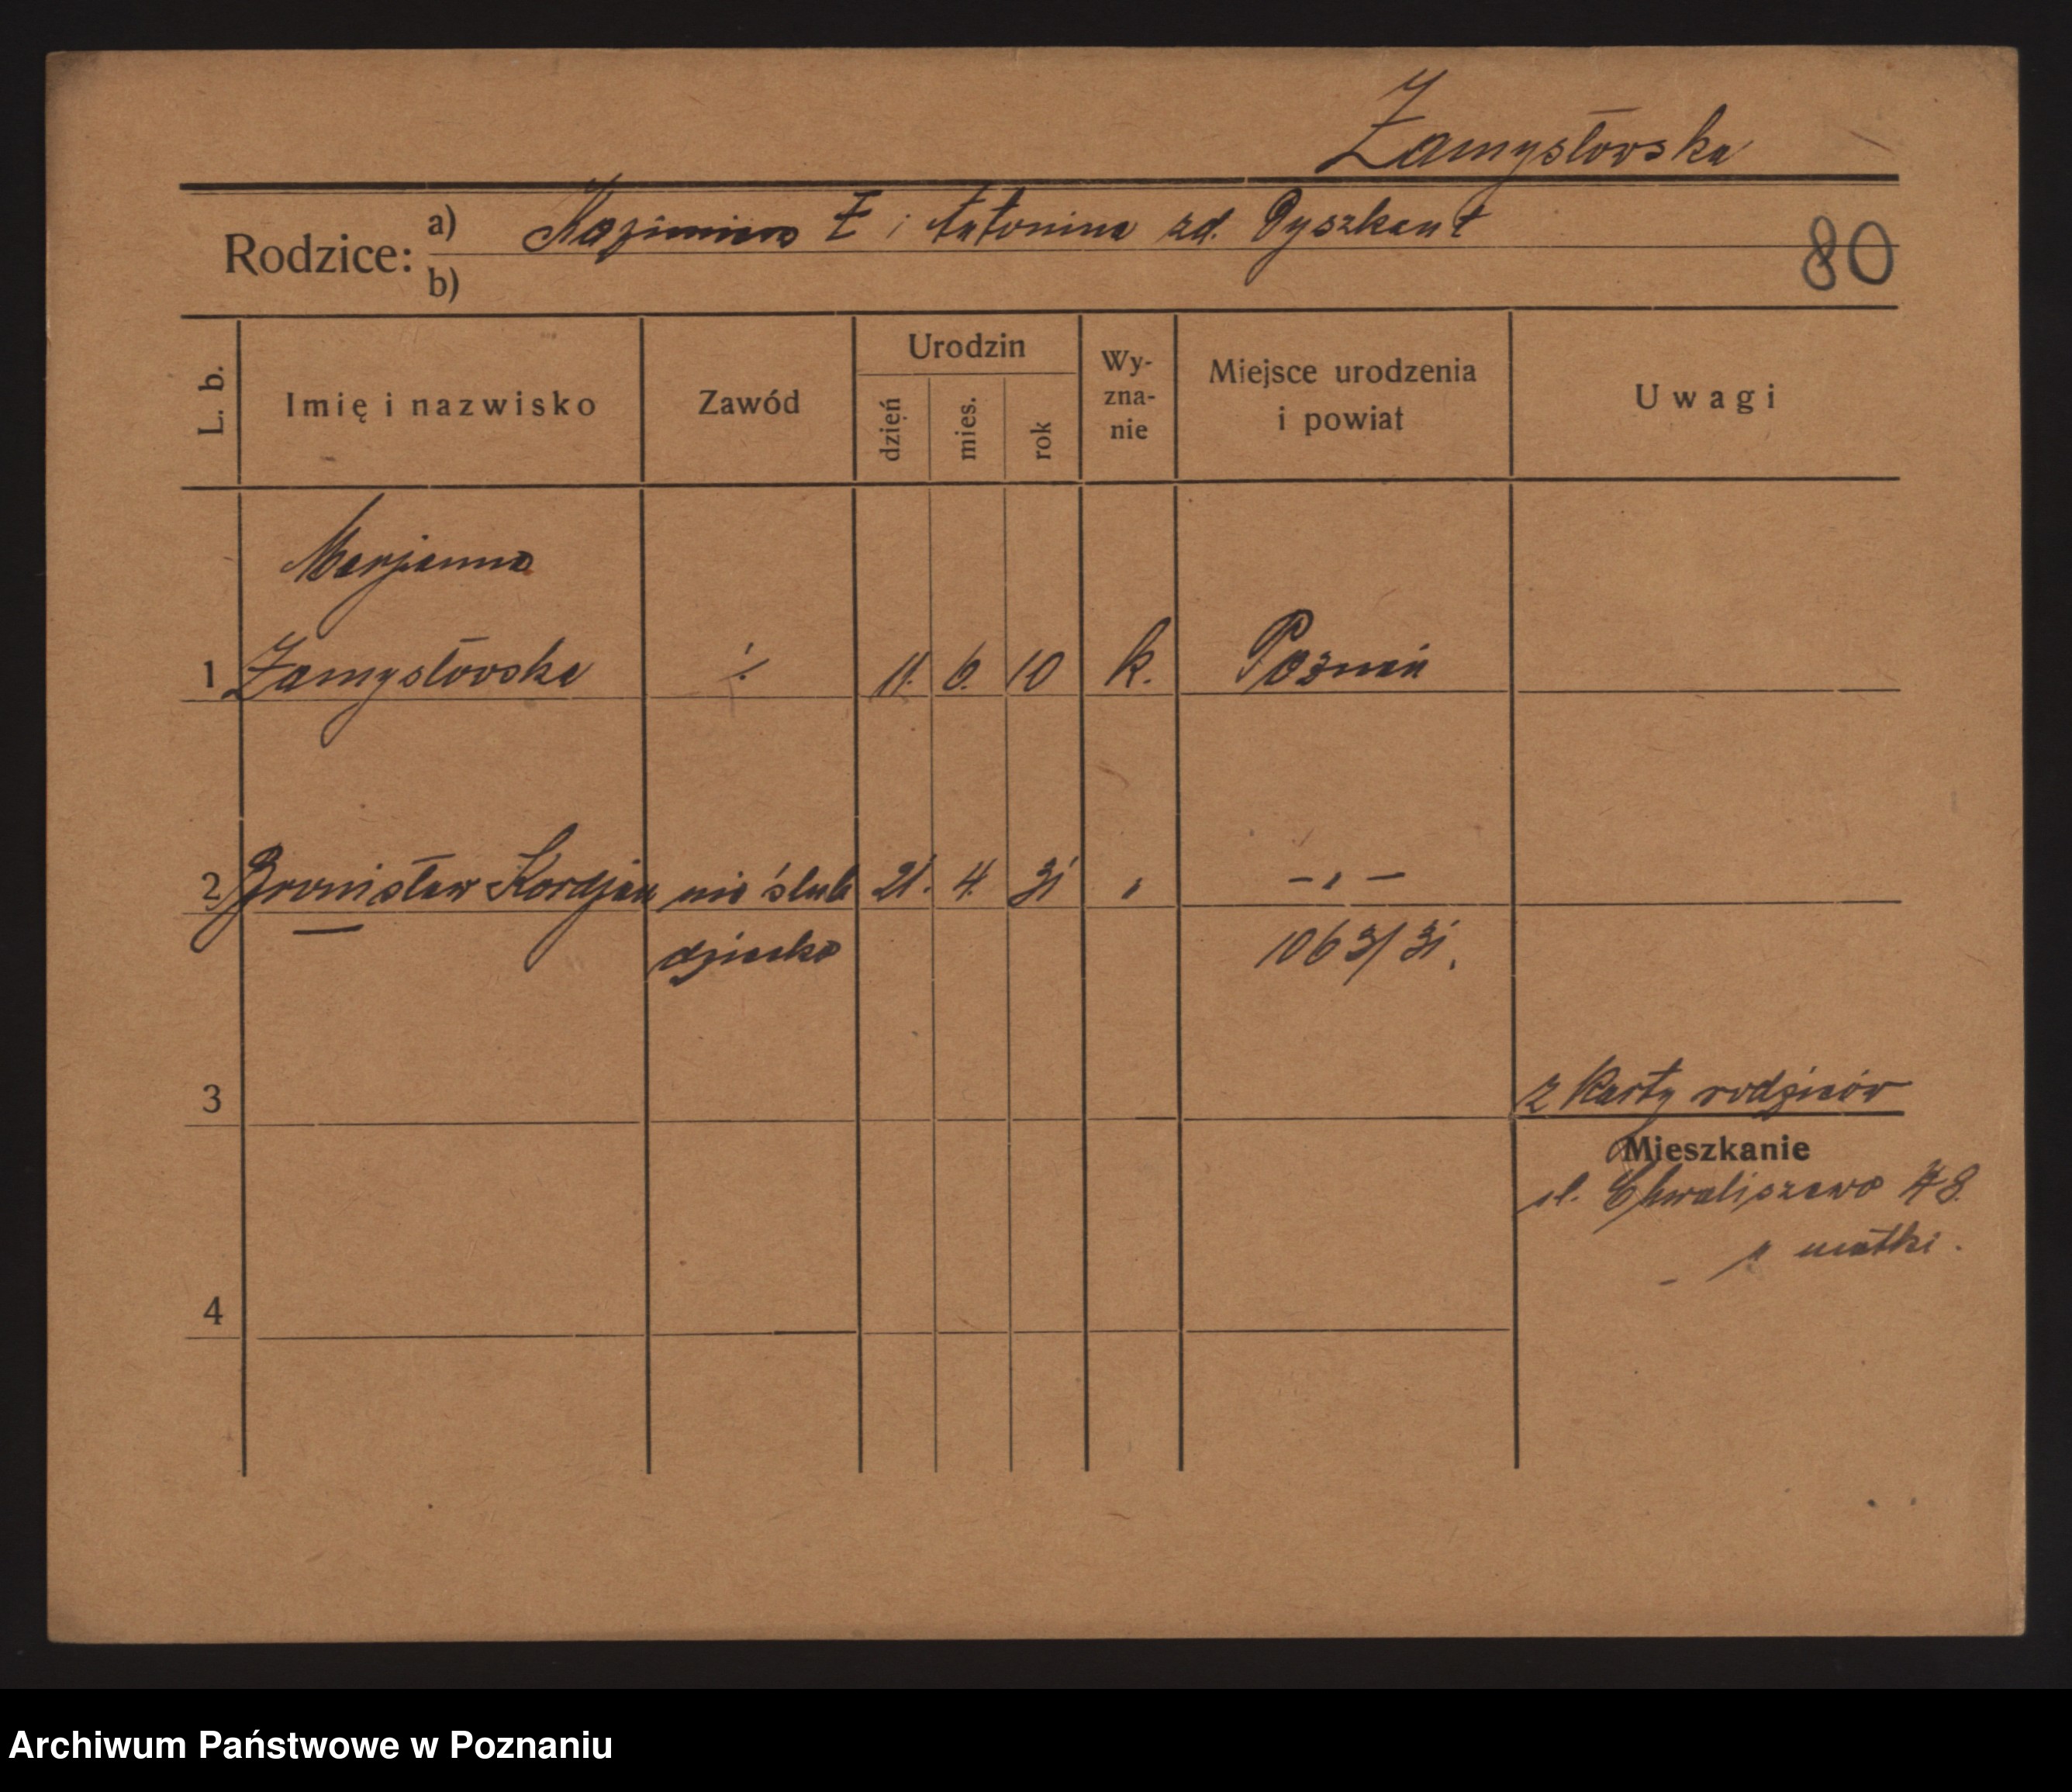 Zamysłowska
Rodzice: a) Kazimierz Z i Antonina zd. Dyszkant
80
b)
L. b. Imię i nazwisko Zawód Urodzin dzień mies. rok Wy-zna-nie Miejsce urodzenia i powiat Uwagi
Marjanna
1 Zamysłowska ·/· 11. 6. 10 k. Poznań
2 Bronisław Kordjan nie ślub 21. 4. 31 " -„-
dziecko 1063/31.
3 z karty rodziców
Mieszkanie
ul. Chwaliszewo 48.
u matki.
4
Archiwum Państwowe w Poznaniu